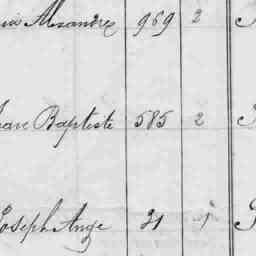 Alexandre 969 2
Jean Baptiste 585 2
Joseph Ange 31